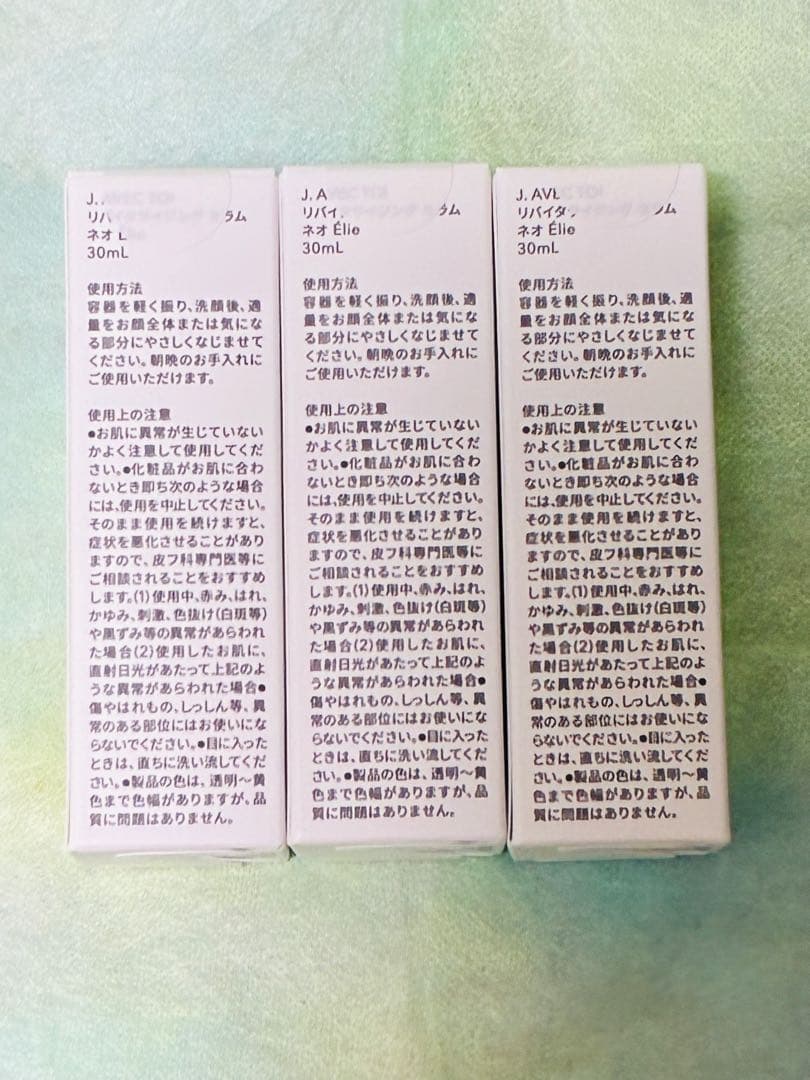 J.
リバ
ラム
ネオ
30mL
使用方法
容器を軽く振り、洗顔後、適
量をお顔全体または気にな
る部分にやさしくなじませて
ください。朝晩のお手入れに
ご使用いただけます。
使用上の注意
●お肌に異常が生じていない
かよく注意して使用してくだ
さい。●化粧品がお肌に合わ
ないとき即ち次のような場合
には、使用を中止してください。
そのまま使用を続けますと、
症状を悪化させることがあり
ますので、皮フ科専門医等に
ご相談されることをおすすめ
します。(1)使用中、赤み、はれ、
かゆみ、刺激、色抜け(白斑等)
や黒ずみ等の異常があらわれ
た場合(2)使用したお肌に、
直射日光があたって上記のよ
うな異常があらわれた場合●
傷やはれもの、しっしん等、異
常のある部位にはお使いにな
らないでください。●目に入った
ときは、直ちに洗い流してくだ
さい。●製品の色は、透明～黄
色まで色幅がありますが、品
質に問題はありません。
J. AVEC TOI
リバイタライジング セラム
ネオ Élie
30mL
使用方法
容器を軽く振り、洗顔後、適
量をお顔全体または気にな
る部分にやさしくなじませて
ください。朝晩のお手入れに
ご使用いただけます。
使用上の注意
●お肌に異常が生じていない
かよく注意して使用してくだ
さい。●化粧品がお肌に合わ
ないとき即ち次のような場合
には、使用を中止してください。
そのまま使用を続けますと、
症状を悪化させることがあり
ますので、皮フ科専門医等に
ご相談されることをおすすめ
します。(1)使用中、赤み、はれ、
かゆみ、刺激、色抜け(白斑等)
や黒ずみ等の異常があらわれ
た場合(2)使用したお肌に、
直射日光があたって上記のよ
うな異常があらわれた場合●
傷やはれもの、しっしん等、異
常のある部位にはお使いにな
らないでください。●目に入った
ときは、直ちに洗い流してくだ
さい。●製品の色は、透明～黄
色まで色幅がありますが、品
質に問題はありません。
J. AVEC TOI
リバイタライジング セラム
ネオ Élie
30mL
使用方法
容器を軽く振り、洗顔後、適
量をお顔全体または気にな
る部分にやさしくなじませて
ください。朝晩のお手入れに
ご使用いただけます。
使用上の注意
●お肌に異常が生じていない
かよく注意して使用してくだ
さい。●化粧品がお肌に合わ
ないとき即ち次のような場合
には、使用を中止してください。
そのまま使用を続けますと、
症状を悪化させることがあり
ますので、皮フ科専門医等に
ご相談されることをおすすめ
します。(1)使用中、赤み、はれ、
かゆみ、刺激、色抜け(白斑等)
や黒ずみ等の異常があらわれ
た場合(2)使用したお肌に、
直射日光があたって上記のよ
うな異常があらわれた場合●
傷やはれもの、しっしん等、異
常のある部位にはお使いにな
らないでください。●目に入った
ときは、直ちに洗い流してくだ
さい。●製品の色は、透明～黄
色まで色幅がありますが、品
質に問題はありません。